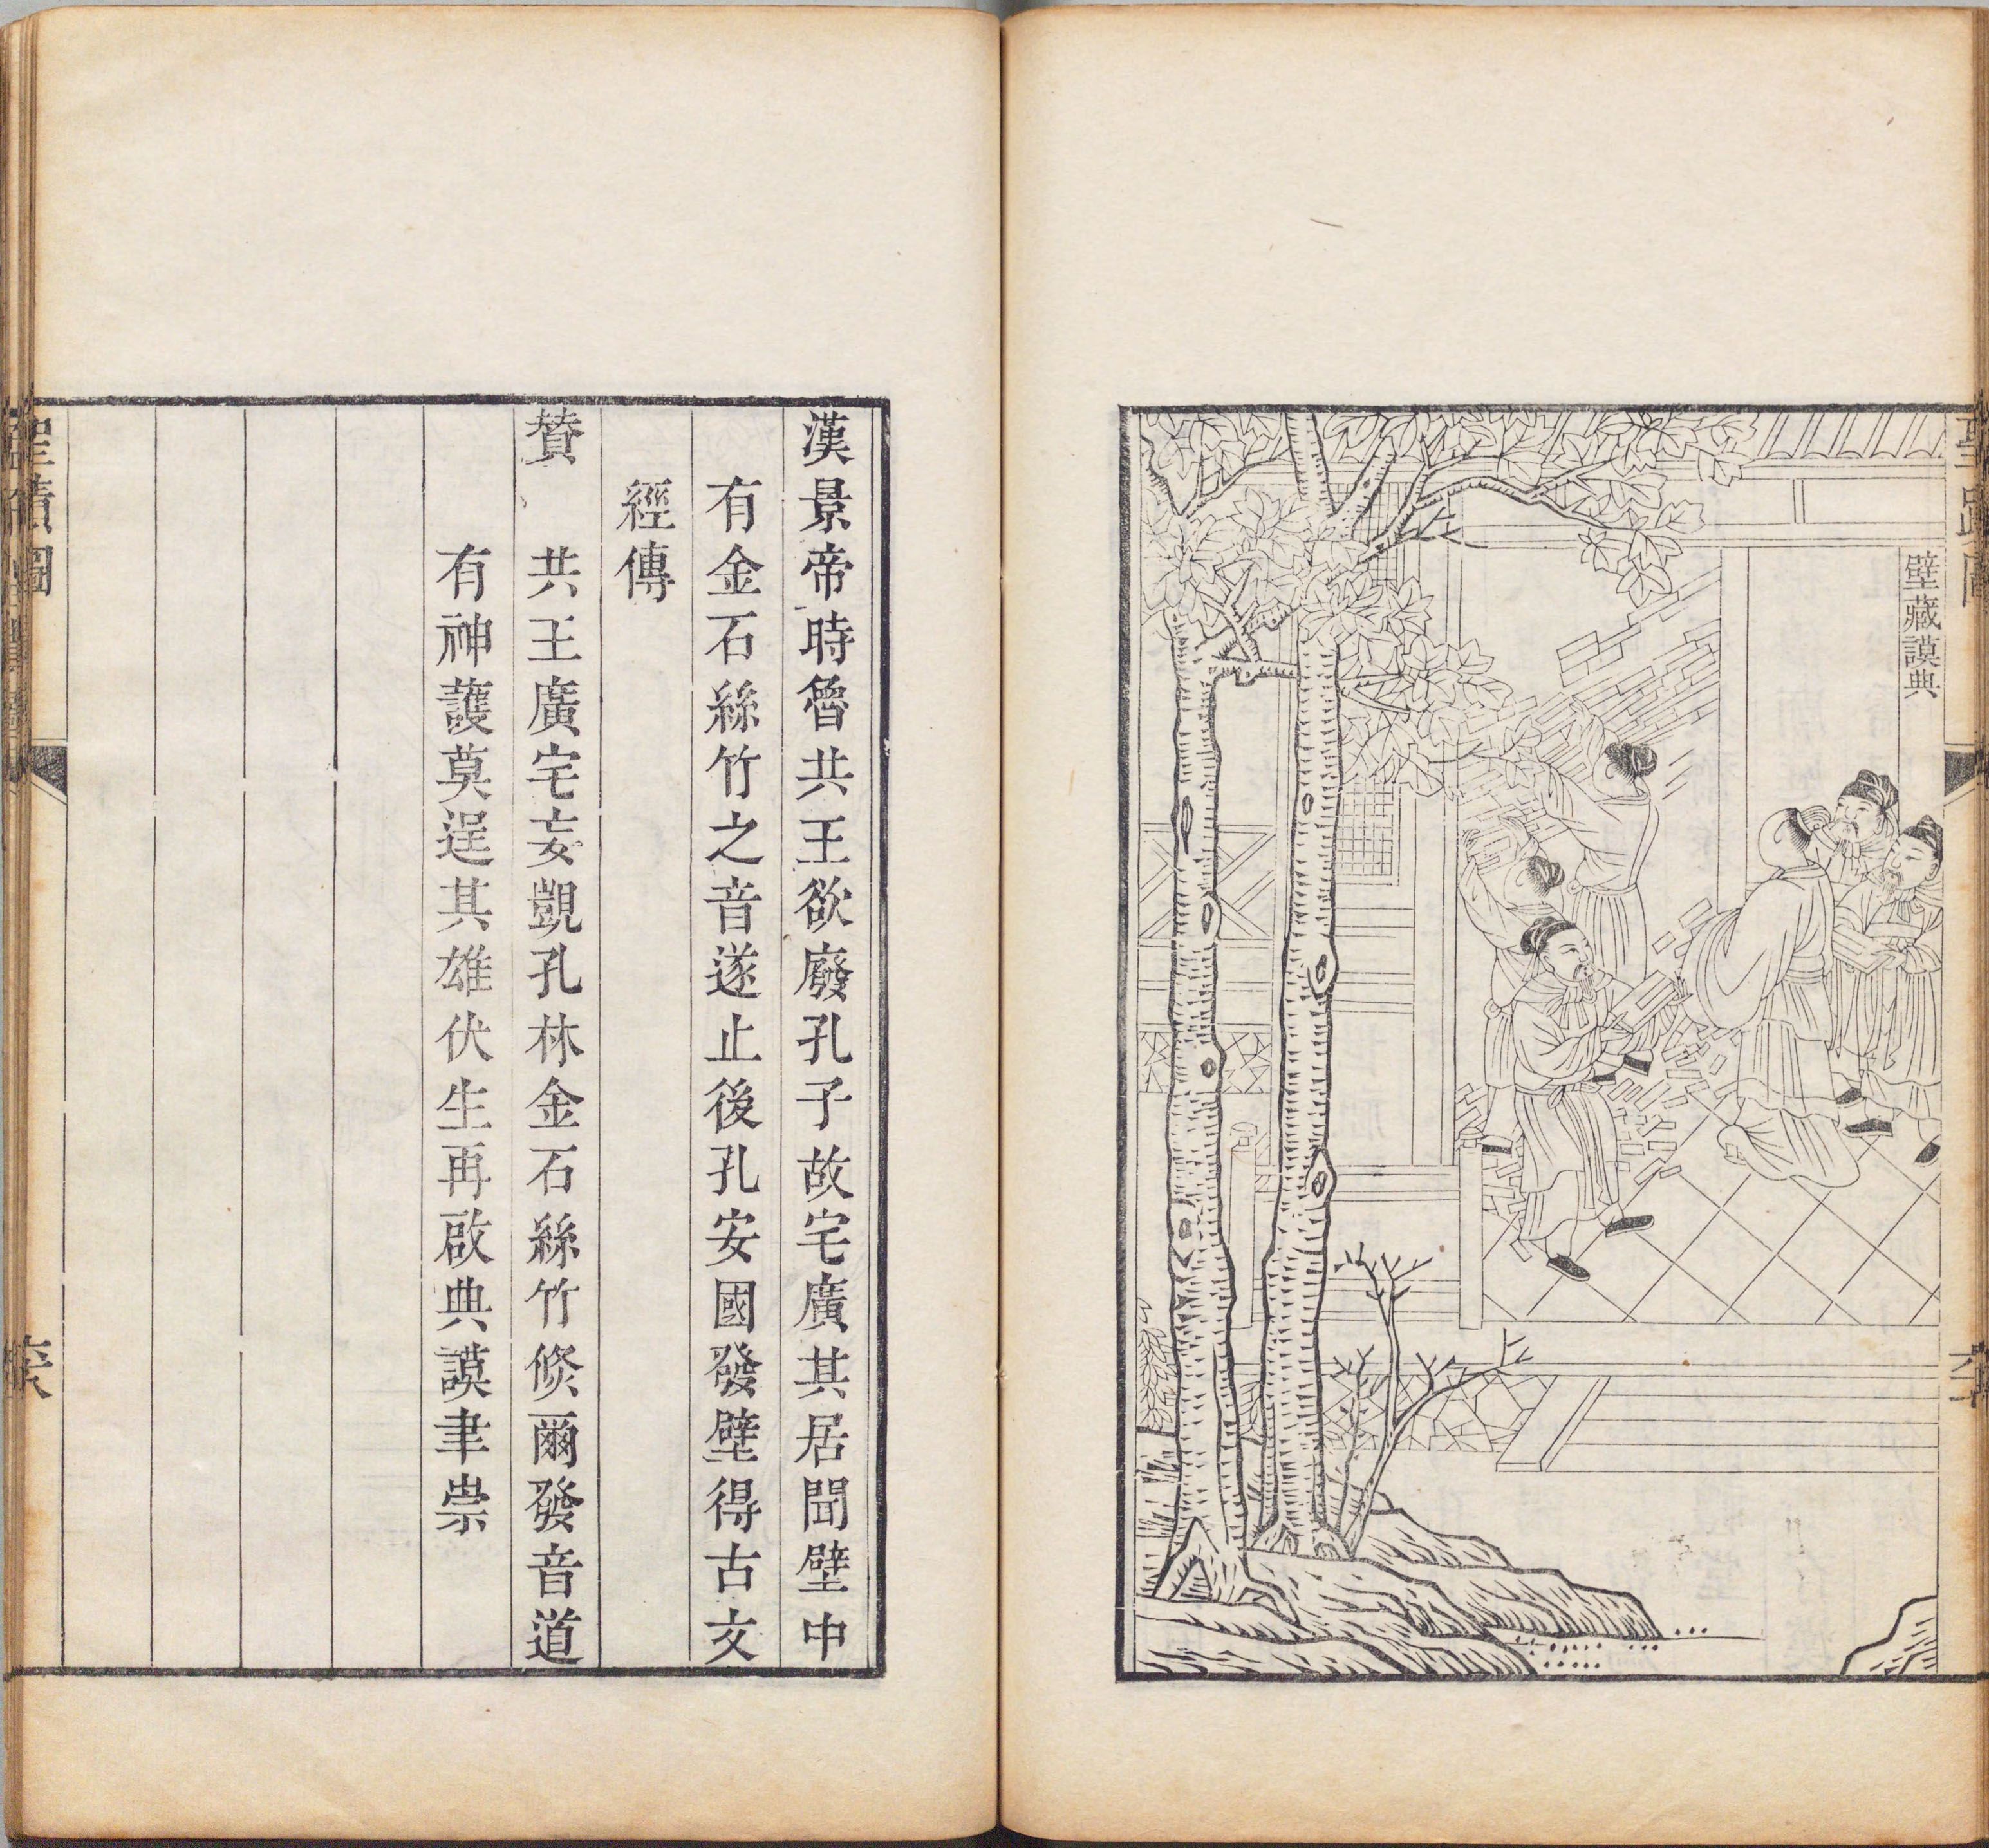 壁藏謨典
漢景帝時魯共王欲廢孔子故宅廣其居聞壁中
有金石絲竹之音遂止後孔安國發壁得古文
經傳
贊 共王廣宅妄覬孔林金石絲竹倐爾發音道
有神護莫逞其雄伏生再啟典謨聿崇
聖蹟圖